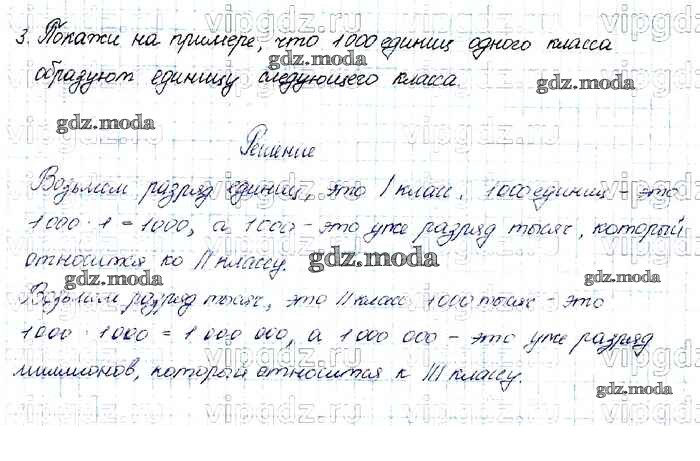 3. Покажи на примере, что 1000 единиц одного класса
образуют единицу следующего класса.
Решение
Возьмом разряд единиц, это I клас. 1000 единиц – это
1000 · 1 = 1000, а 1000 – это уже разряд тысяч, который
относится ко II классу.
Возьмом разряд тысяч, это II класс 1000 тысяч – это
1000 · 1000 = 1 000 000, а 1 000 000 – это уже разряд
миллионов, который относится к III классу.
gdz.moda
gdz.moda
gdz.moda
gdz.moda
gdz.moda
gdz.moda
gdz.moda
gdz.moda
vipgdz.ru